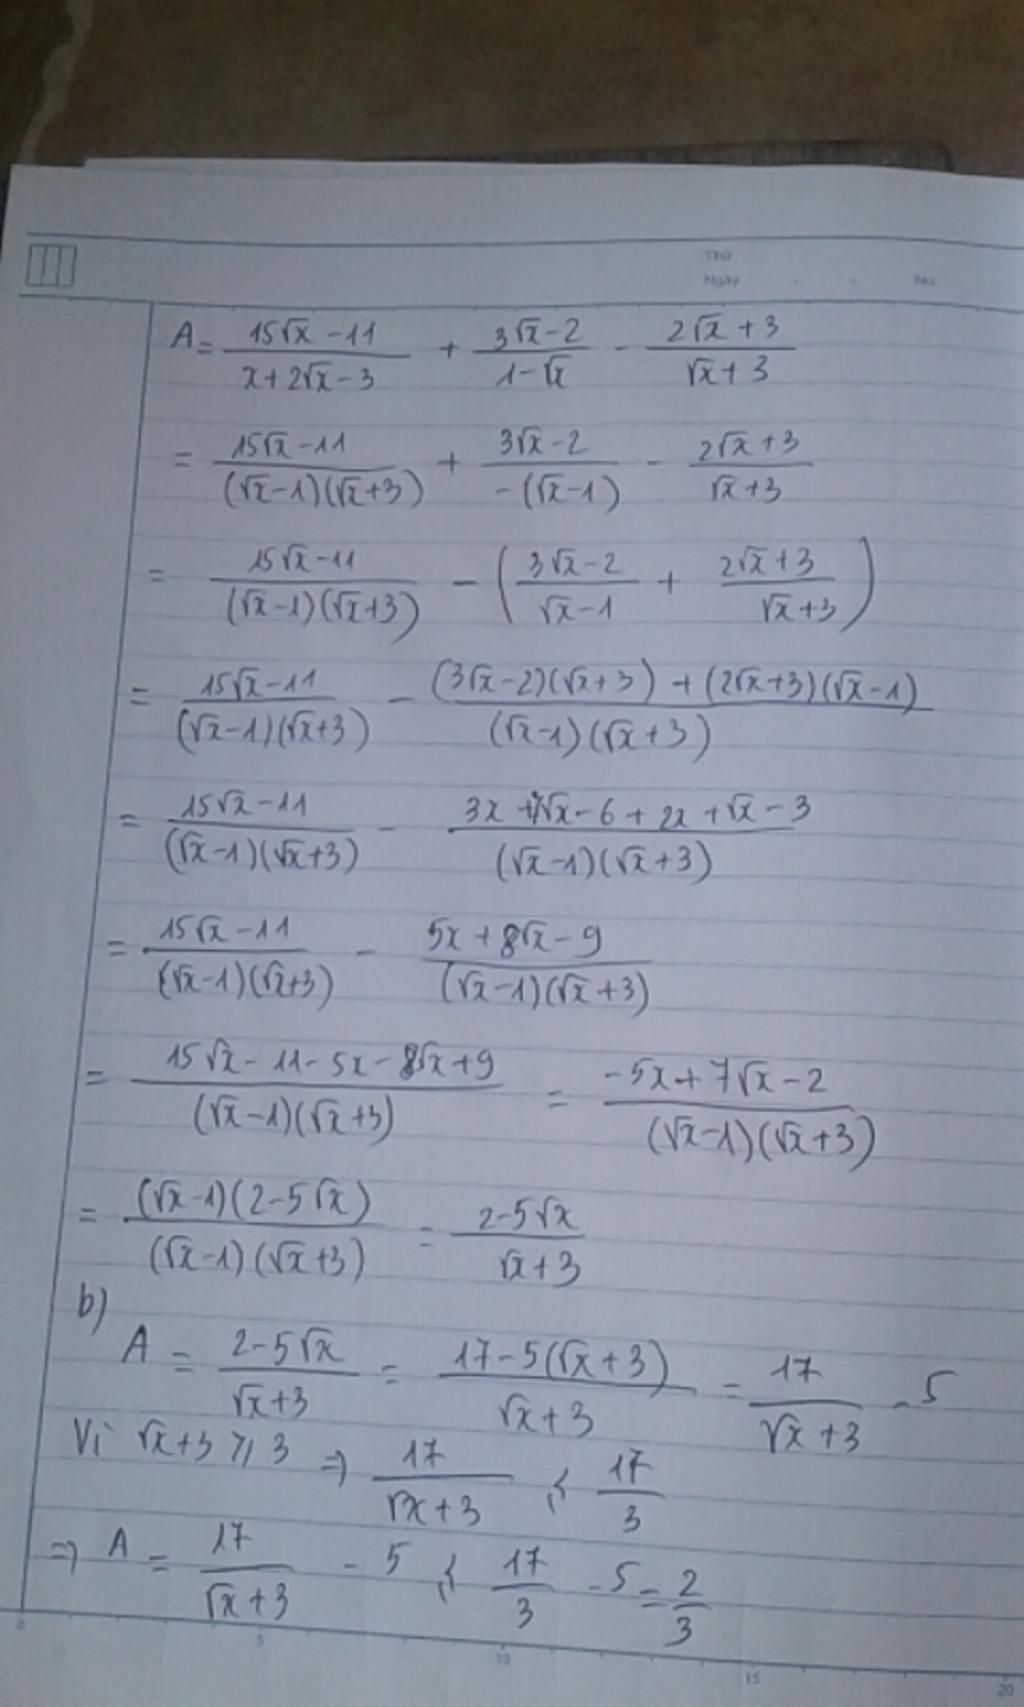 Thứ
Ngày . . No.
A = \frac{15√x - 11}{x + 2√x - 3} + \frac{3√x - 2}{1 - √x} - \frac{2√x + 3}{√x + 3}
= \frac{15√x - 11}{(√x - 1)(√x + 3)} + \frac{3√x - 2}{-(√x - 1)} - \frac{2√x + 3}{√x + 3}
= \frac{15√x - 11}{(√x - 1)(√x + 3)} - \left( \frac{3√x - 2}{√x - 1} + \frac{2√x + 3}{√x + 3} \right)
= \frac{15√x - 11}{(√x - 1)(√x + 3)} - \frac{(3√x - 2)(√x + 3) + (2√x + 3)(√x - 1)}{(√x - 1)(√x + 3)}
= \frac{15√x - 11}{(√x - 1)(√x + 3)} - \frac{3x + 7√x - 6 + 2x + √x - 3}{(√x - 1)(√x + 3)}
= \frac{15√x - 11}{(√x - 1)(√x + 3)} - \frac{5x + 8√x - 9}{(√x - 1)(√x + 3)}
= \frac{15√x - 11 - 5x - 8√x + 9}{(√x - 1)(√x + 3)} = \frac{-5x + 7√x - 2}{(√x - 1)(√x + 3)}
= \frac{(√x - 1)(2 - 5√x)}{(√x - 1)(√x + 3)} = \frac{2 - 5√x}{√x + 3}
b)
A = \frac{2 - 5√x}{√x + 3} = \frac{17 - 5(√x + 3)}{√x + 3} = \frac{17}{√x + 3} - 5
Vì √x + 3 ⩾ 3 ⇒ \frac{17}{√x + 3} ⩽ \frac{17}{3}
⇒ A = \frac{17}{√x + 3} - 5 ⩽ \frac{17}{3} - 5 = \frac{2}{3}
0 5 10 15 20